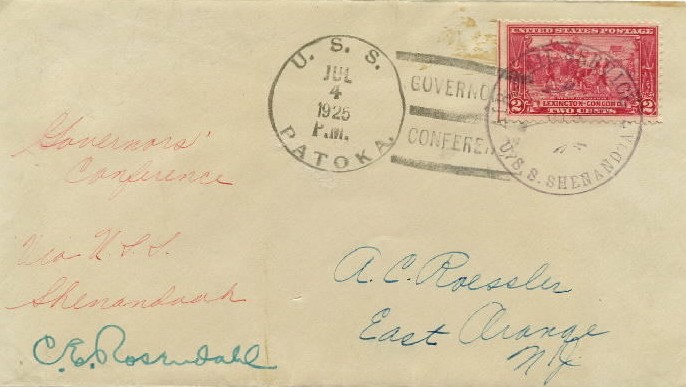 U. S. S.
JUL
4
1925
P.M.
PATOKA.
GOVERNO
CONFEREN
UNITED STATES POSTAGE
2 LEXINGTON-CONCORD 2
TWO CENTS
U.S.S. SHENANDOA
Governors'
Conference
Via U.S.S.
Shenandoah
C.E. Rosendahl
A. C. Roessler
East Orange
N.J.